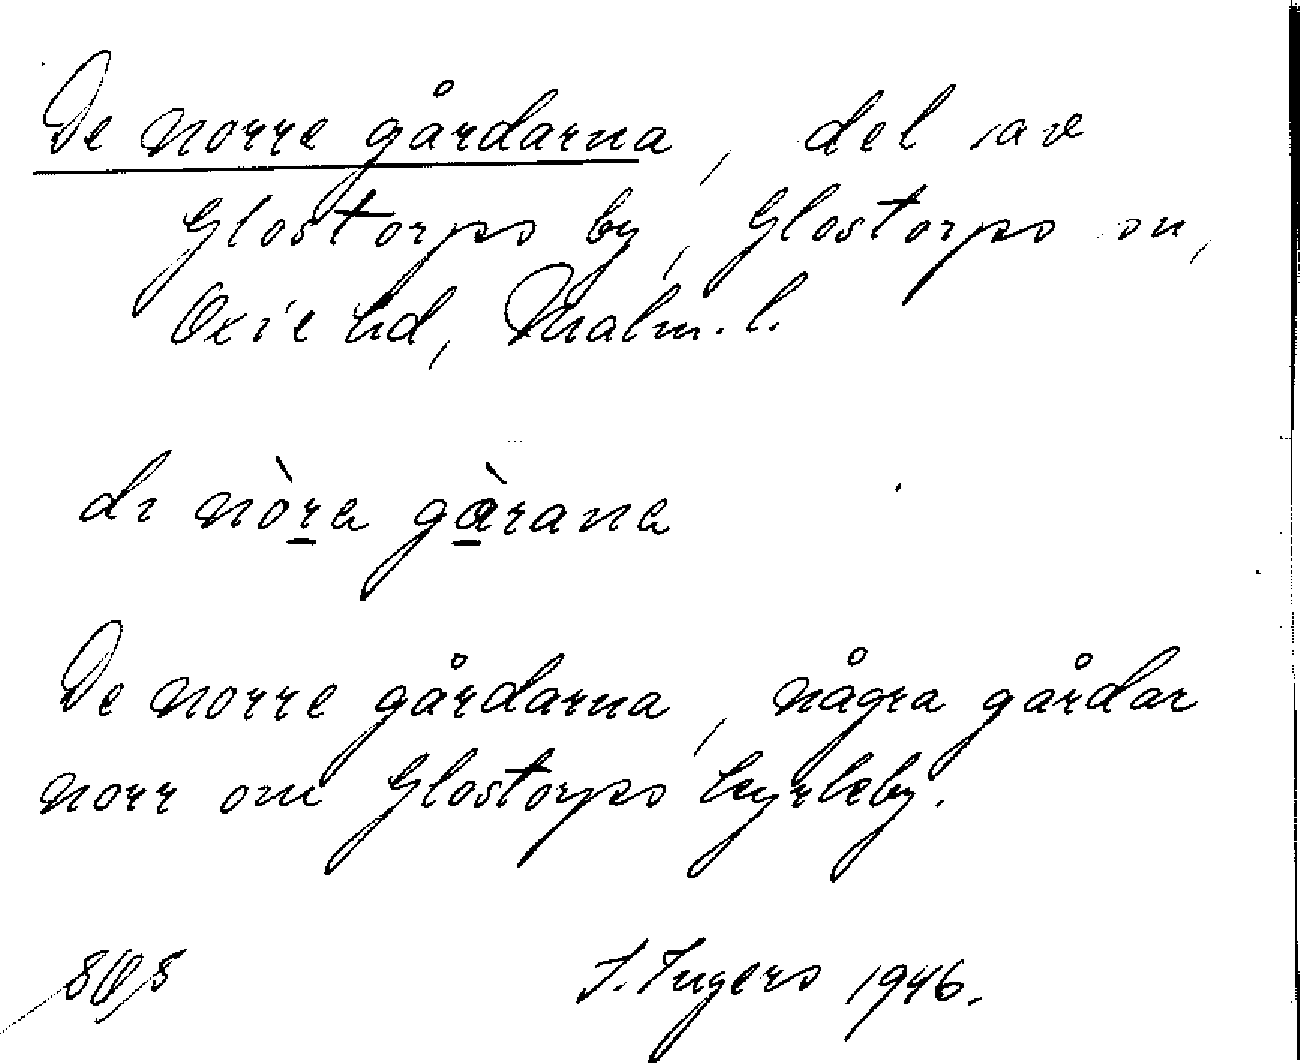 De norre gårdarna, del av
Glostorps by, Glostorps sn,
Oxie hd, Malm. l.
di nòra gàrana
De norre gårdarna, några gårdar
norr om Glostorps kyrkby.
I. Ingers 1946.